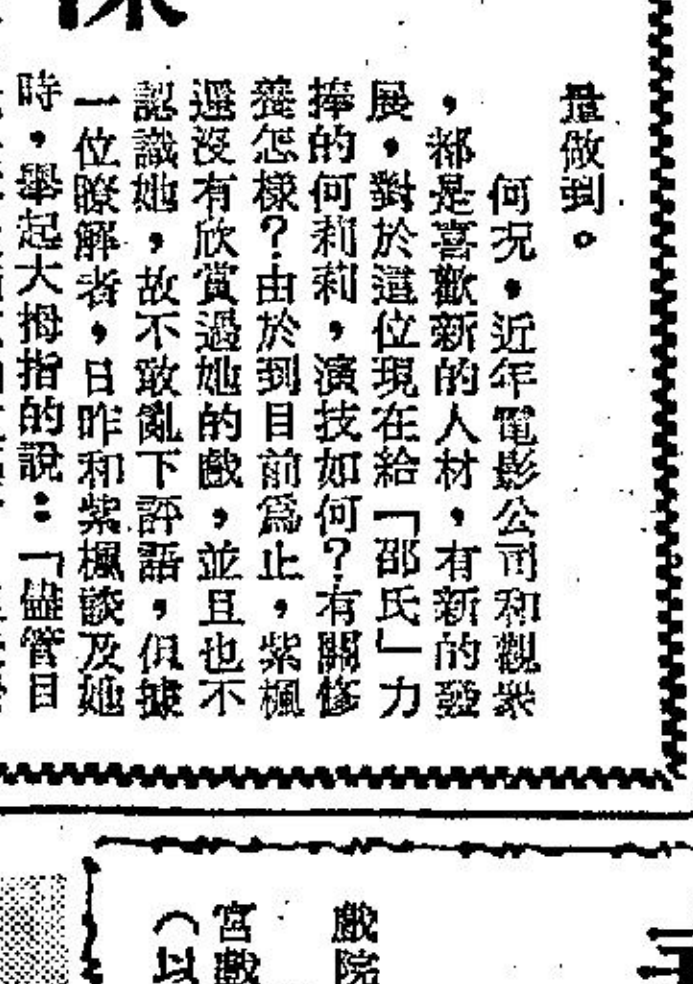 量做到。
何況，近年電影公司和觀衆
，都是喜歡新的人材，有新的發
展，對於這位現在給「邵氏」力
捧的何莉莉，演技如何？有關修
養怎樣？由於到目前爲止，紫楓
還沒有欣賞過她的戲，並且也不
認識她，故不敢亂下評語，俱據
一位瞭解者，日昨和紫楓談及她
時，舉起大拇指的說：「儘管目
戲院
宮戲
（以